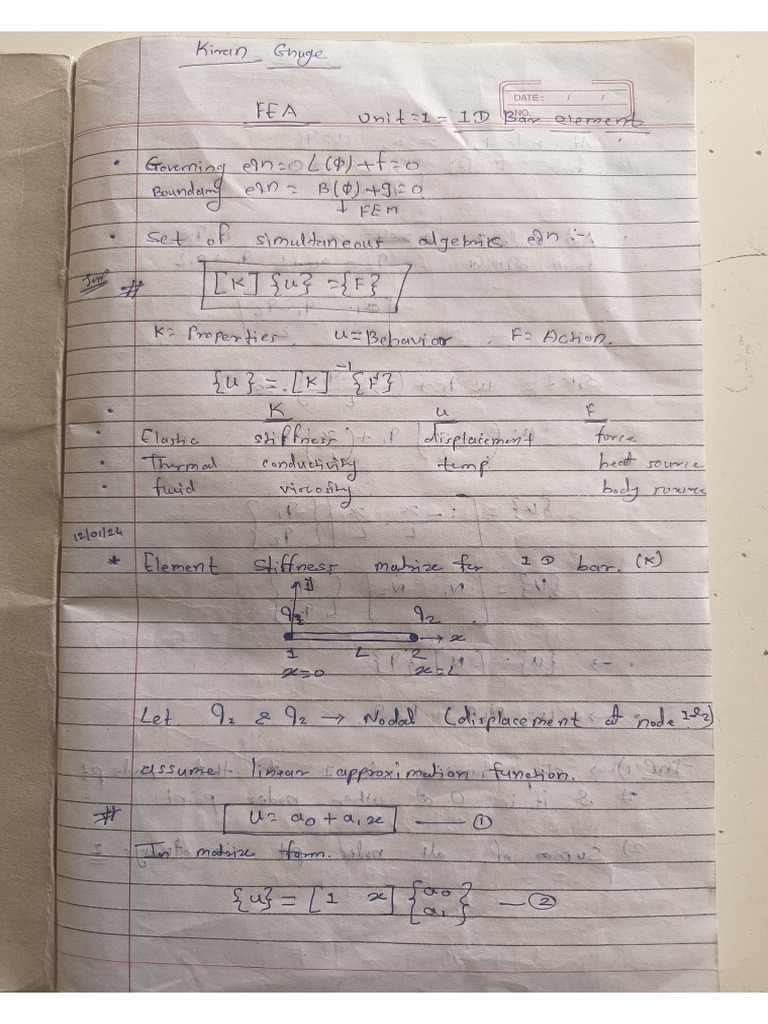 Kiran Ghuge
DATE: / /
NO.
FEA Unit=1= 1D Bar element
• Governing eqn=0 L(φ)+f=0
Boundary eqn = B(φ)+g=0
↓ FEM
• Set of simultaneous algebric eqn :-
Imp # [K] {u} = {F}
K= Properties, u=Behavior, F= Action.
{u} = [K]⁻¹ {F}
• K u F
• Elastic stiffness displacement force
• Thermal conductivity temp heat source
• fluid viscosity - body source
12/01/24
* Element Stiffness matrix for 1D bar. (K)
q₂ q₂ → x
1 L 2
x=0 x=L
Let q₂ & q₂ → Nodal (displacement at node 1&2)
assume linear approximation function.
# u= a₀ + a₁x —— ①
In matrix form.
{u} = [1 x] {a₀ a₁} — ②